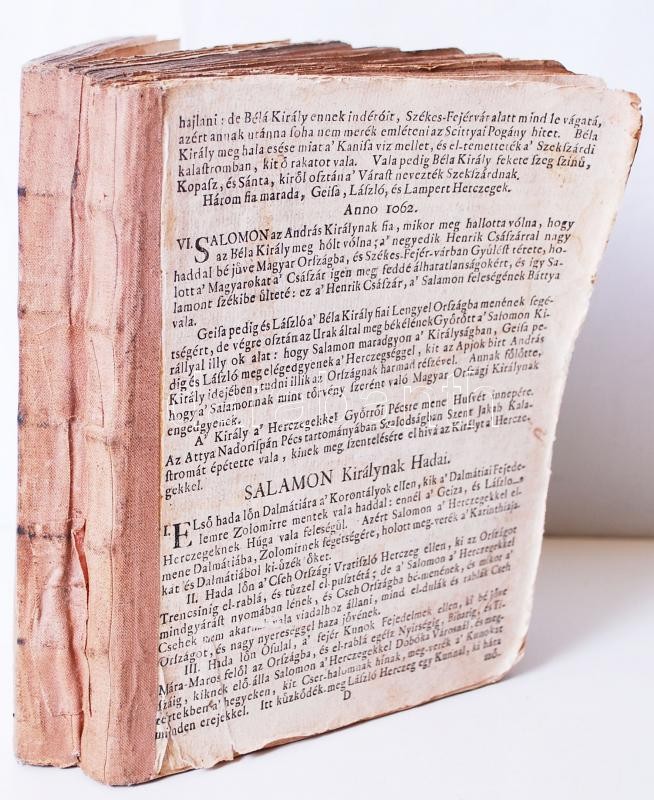 hajlani: de Bélá Király ennek indéróit, Székes-Fejérvár alatt mind le vágatá,
azért annak utánna soha nem merék emléteni az Scittyai Pogány hitet. Béla
Király meg hala esése miat a' Kanisa viz mellet, és el-temetteték a' Szekszárdi
kalastromban, kit ő rakatot vala. Vala pedig Béla Király fekete szeg szinű,
Kopasz, és Sánta, kiről osztán a' Várast nevezték Szekszárdnak.
Három fia marada, Geisa, László, és Lampert Herczegek.
Anno 1062.
VI. SALOMON az András Királynak fia, mikor meg hallotta vólna, hogy
az Béla Király meg hólt vólna; a' negyedik Henrik Császárral nagy
haddal bé jüve Magyar Országba, és Székes-Fejér-várban Gyűlést tétete, ho-
lott a' Magyarokat a' Császár igen meg feddé álhatatlanságokért, és igy Sa-
lamont székibe űlteté: ez a' Henrik Császár, a' Salamon feleségének Báttya
vala.
Geisa pedig és László a' Béla Király fiai Lengyel Országba menének segé-
tségért, de végre osztán az Urak által meg békélének Győrött a' Salomon Ki-
rállyal illy ok alat: hogy Salamon maradgyon a' Királyságban, Geisa pe-
dig és László meg elégedgyenek a' Herczegséggel, kit az Apjok birt András
Király idejében, tudni illik az Országnak harmad részével. Annak fölötte,
hogy a' Salamonnak mint törvény szerént való Magyar Országi Királynak
engedgyenek.
A' Király a' Herczegekkel Győrről Pécsre mene Husvét innepére.
Az Attya Nádorispán Pécs tartományában Szalodságban Szent Jakab Kala-
stromát épétette vala, kinek meg szentelésére el hivá az Királyt a' Hercze-
gekkel.
SALAMON Királynak Hadai.
I. ELső hada lőn Dalmátiára a' Korontályok ellen, kik a' Dalmátiai Fejede-
lemre Zolomirre mentek vala haddal: ennél a' Geiza, és László
Herczegeknek Húga vala feleségül. Azért Salamon a' Herczegekkel el-
mene Dalmátiába, Zolomirnek segétségére, holott meg-verék a' Karinthia-
kat és Dalmátiából ki-űzék őket.
II. Hada lőn a' Cseh Országi Vratiszló Herczeg ellen, ki az Országot
Trencsinig el-rablá, és tűzzel el-pusztétá; de a' Salamon a' Herczegekkel
mindgyárást nyomában lének, és Cseh Országba bé-menének, és mikor a'
Csehek nem akartak vala viadalhoz állani, mind el-dulák és rablák Cseh
Országot, és nagy nyereséggel haza jövének.
III. Hada lőn Osulal, a' fejér Kunok Fejedelmek ellen, ki bé jöve
Mára-Maros felől az Országba, és el-rablá egész Nyirségig, Biharig, és Ti-
száig, kiknek elő-álla Salamon a' Herczegekkel Doboka Városnál, és meg-
tértekben a' hegyeken, kit Cser-halomnak hinak, meg-verék a' Kunokat
minden erejekkel. Itt küzködék-meg László Herczeg egy Kunnal, ki hára
D
mő-